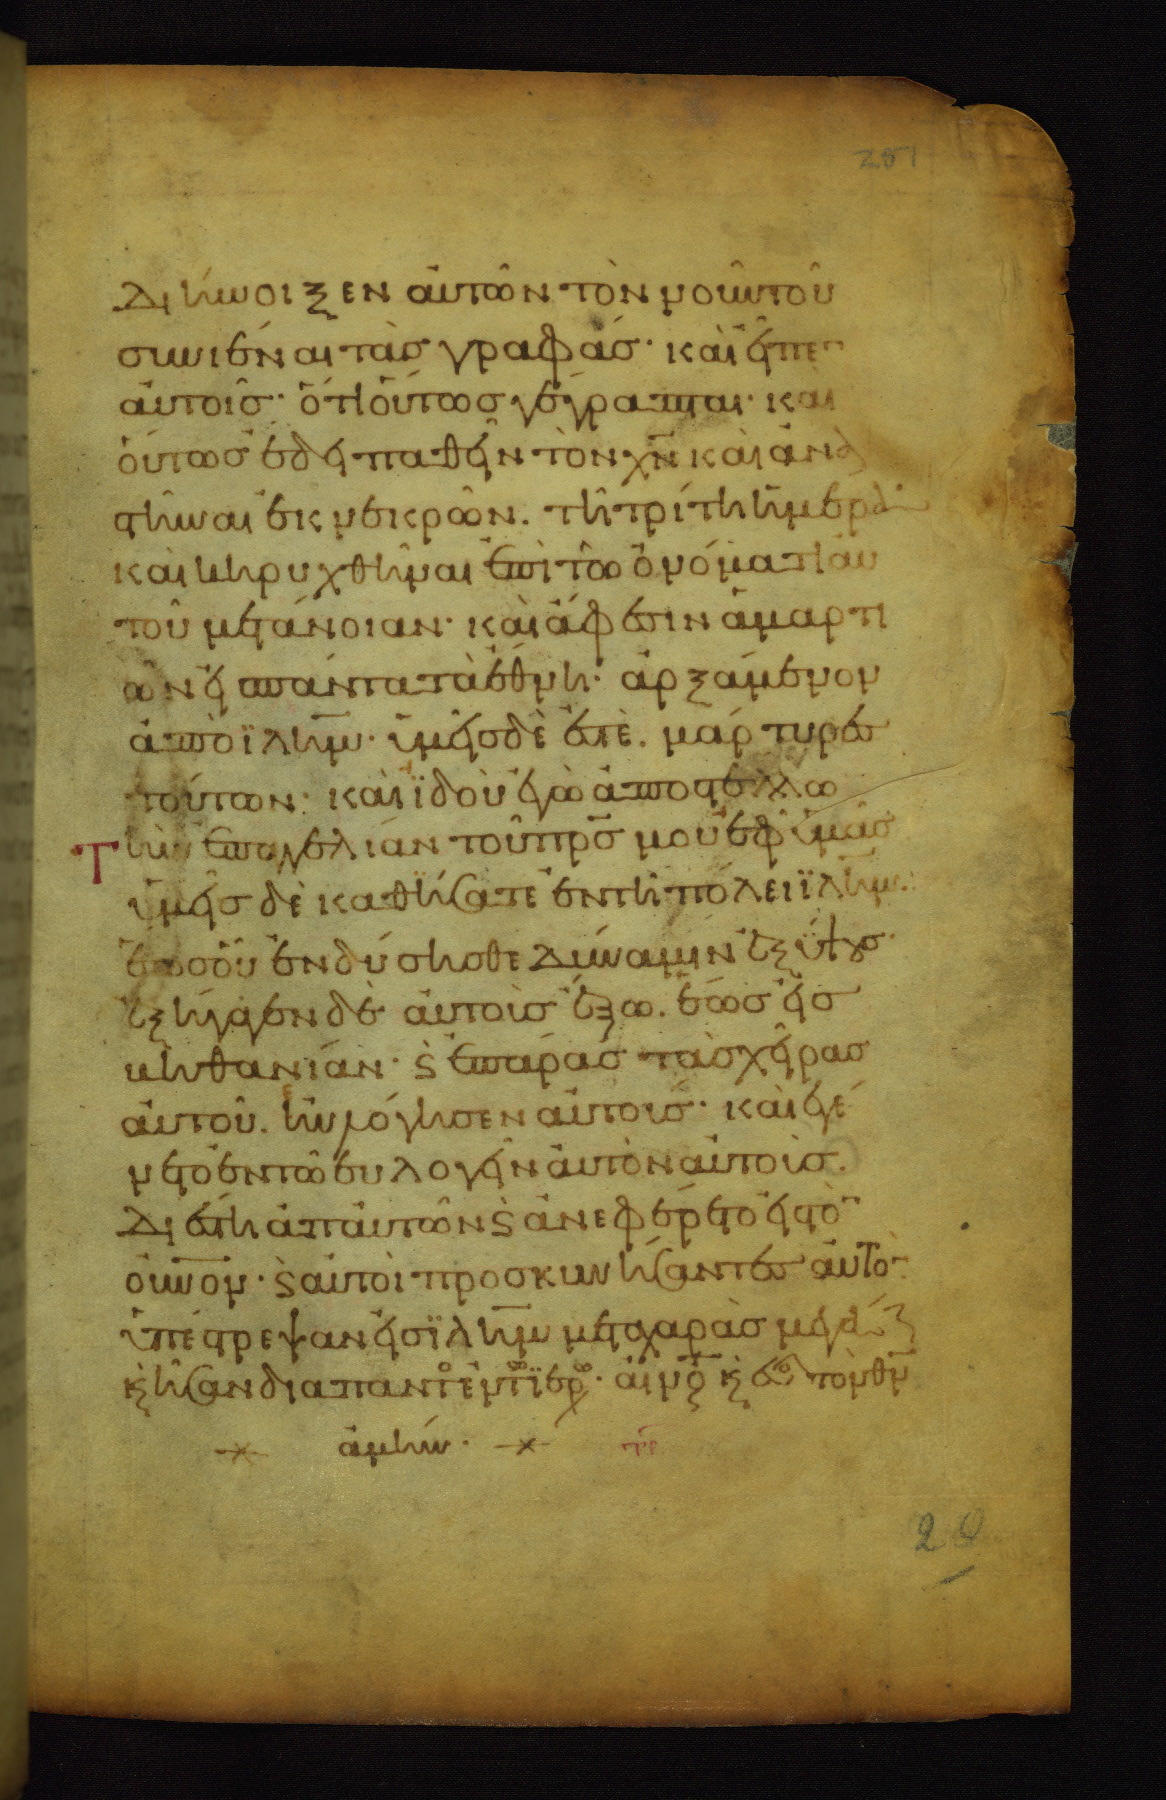 251
Διήνοιξεν αὐτῶν τὸν νοῦν τοῦ
συνιέναι τὰς γραφάς· καὶ εἶπεν
αὐτοῖς· ὅτι οὕτως γέγραπται· και
οὕτως ἔδει παθεῖν τὸν χν̅ καὶ ἀνα
στῆναι ἐκ νεκρῶν. τῆ τρίτη ἡμέρα
καὶ κηρυχθῆναι ἐπὶ τῶ ὀνόματι αυ
τοῦ μετάνοιαν· καὶ ἄφεσιν ἁμαρτι
ῶν εἰ πάντα τὰ ἔθνη· ἀρξάμενον
ἀπὸ ϊλημ̅· ὑμεῖς δὲ ἐστὲ. μάρτυρες
τούτων· καὶ ϊδοὺ ἐγὼ ἀποστέλλω
Τὴν ἐπαγγελίαν τοῦ πρς̅ μου ἐφ ὑμᾶς
ὑμεῖς δὲ καθήσατε ἐν τῆ πόλει ϊλημ̅.
ἕως οὗ ἐνδύσησθε δύναμιν ἐξ ὕψους·
ἐξήγαγεν δὲ αὐτοὺς ἔξω. ἕως εἰς
βηθανίαν· ϛ ἐπάρας τὰς χεῖρας
αὐτοῦ. ηὐλόγησεν αὐτούς· καὶ ἐγέ
νετο ἐν τῶ εὐλογεῖν αὐτὸν αὐτοὺς.
Διέστη ἀπ αὐτῶν ϛ ἀνεφέρετο εἰς τὸ
οὐνον̅· ϛ αὐτοὶ προσκυνήσαντες αὐτὸ
ὑπέστρεψαν εἰς ϊλημ̅ μετα χαρὰς μεγάλης
κ ἦσαν διαπαντο ἐν τω ϊερω· αἰνο κ ευλο τὸν θν̅
ἀμήν·
τε
20